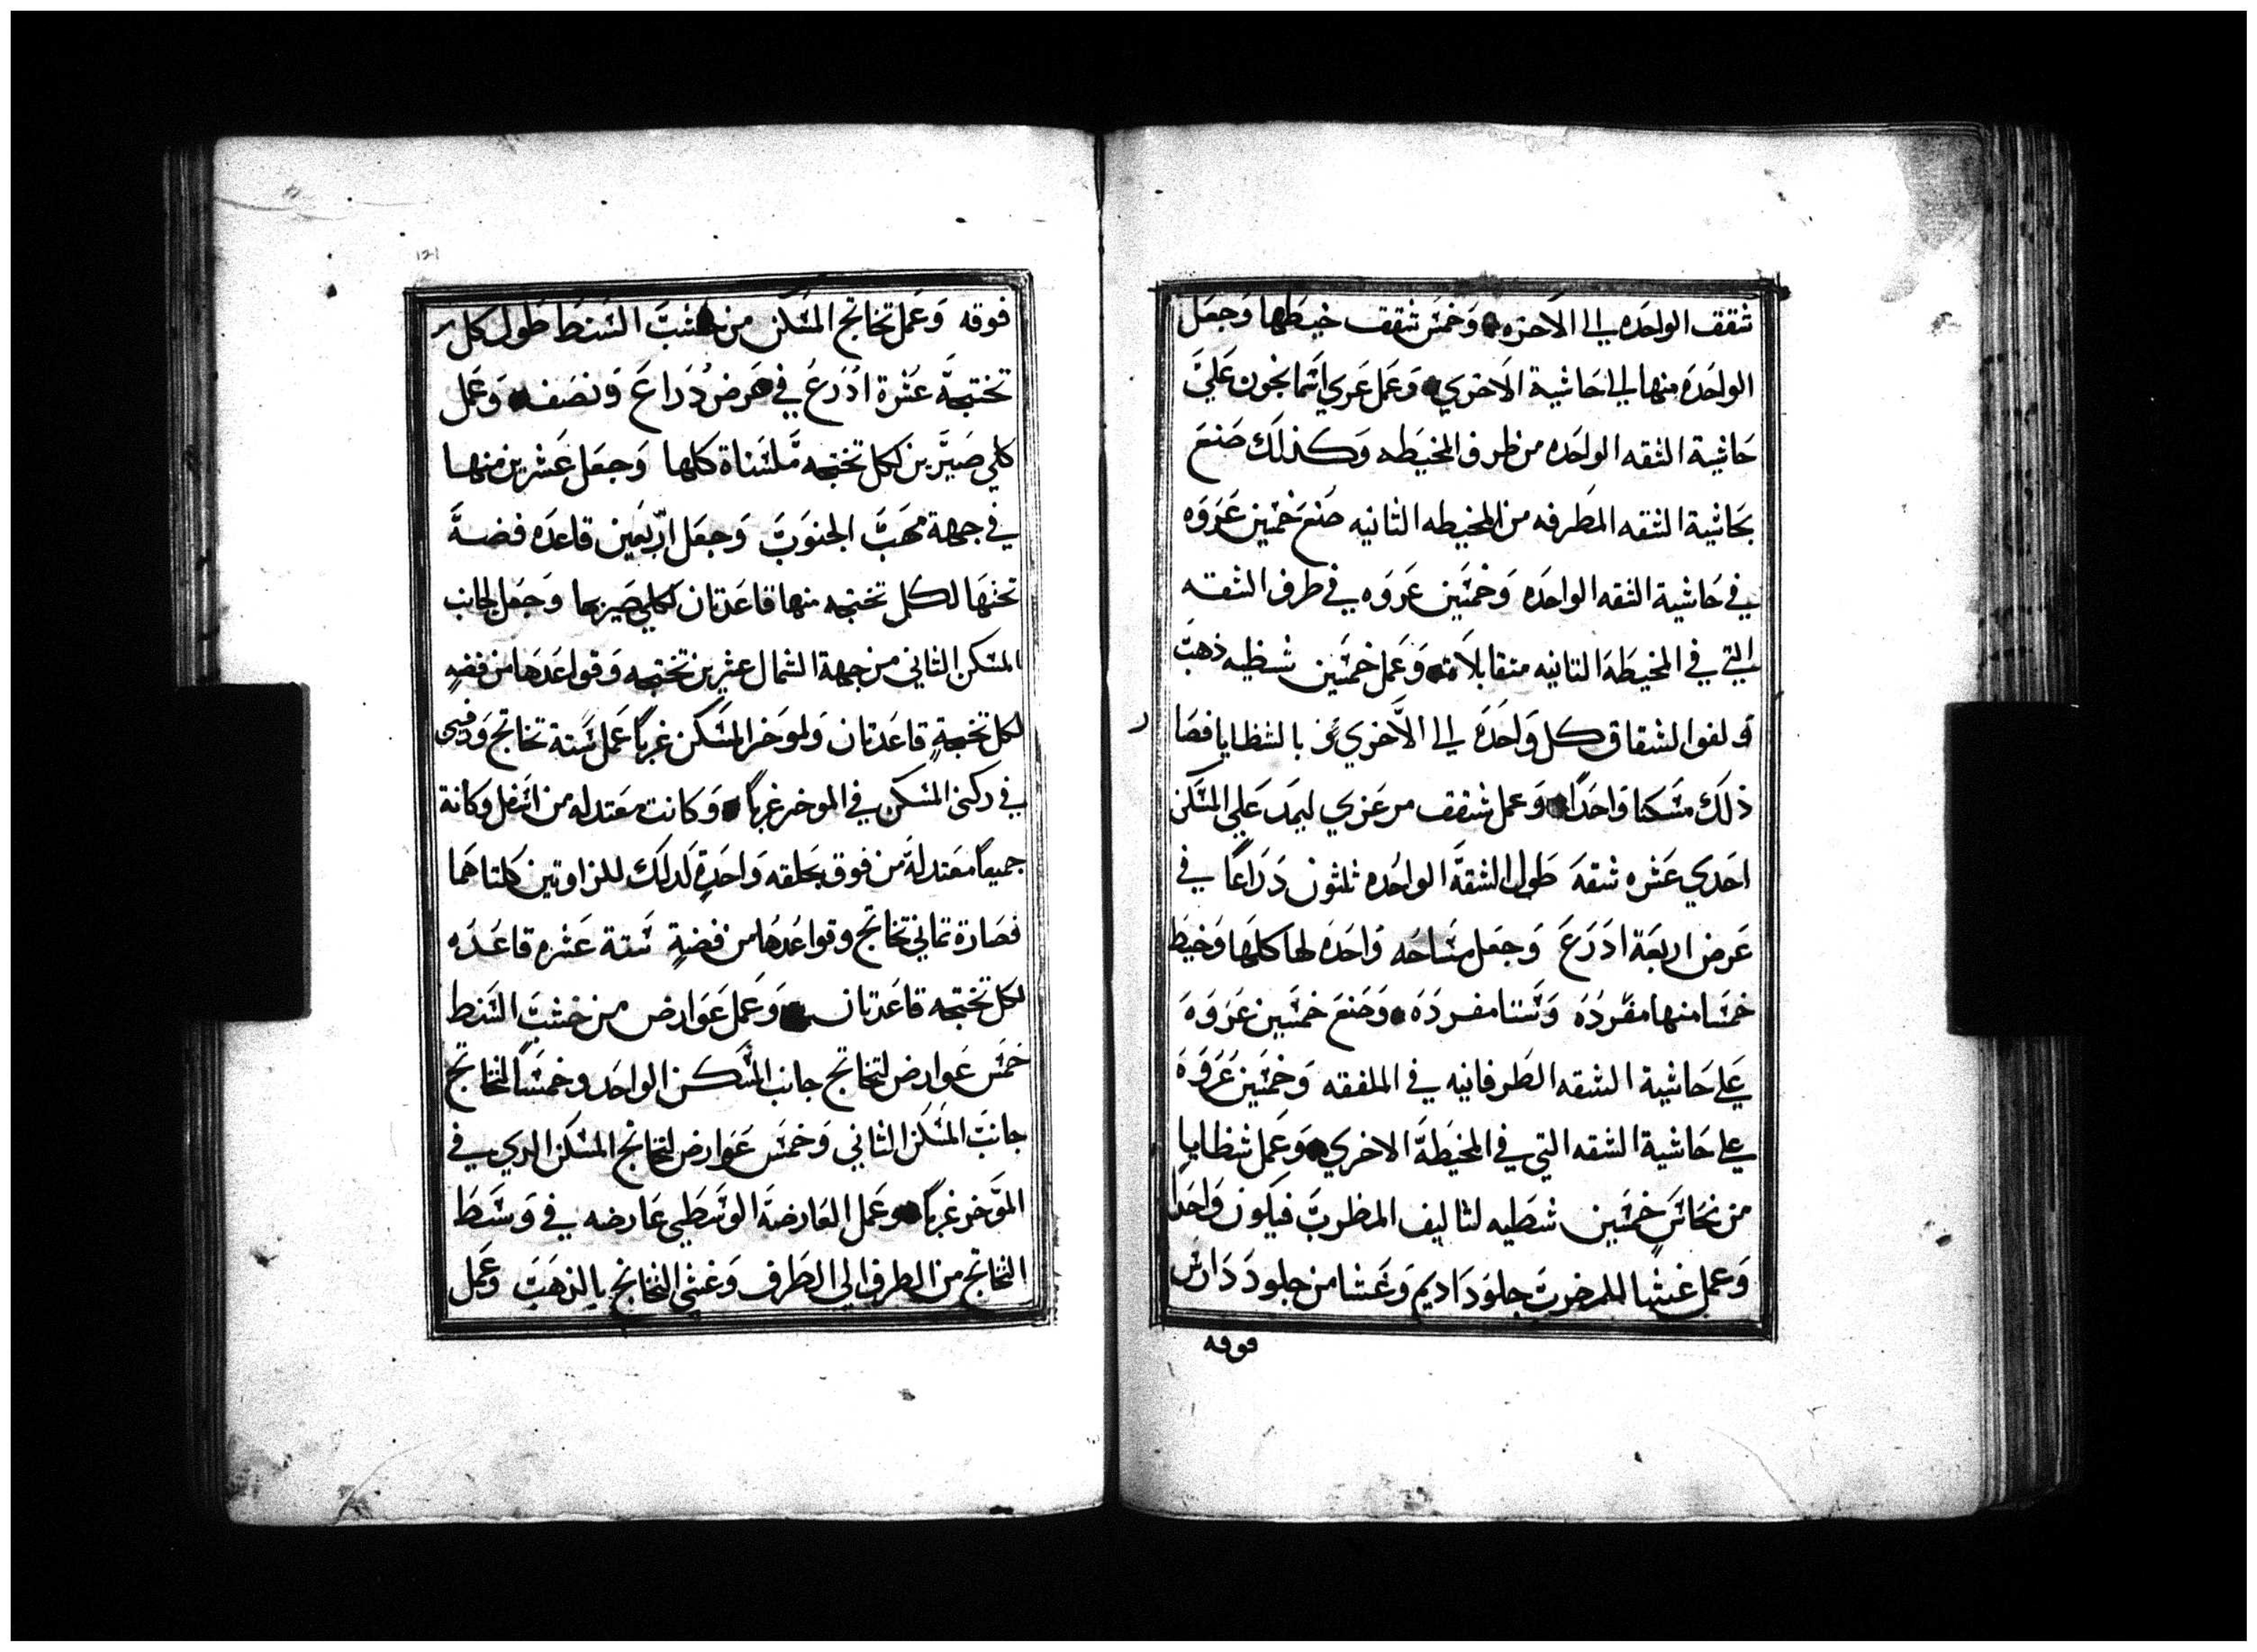 شقق الواحده الي الاخره وَخمسَ شقق خيطها وَجعَل
الواحَدَه منها الي حَاشية الاخري وَعَمل عَري اسمانجون عَليَ
حَاشية الشقه الواحَده من طرف المخيَطه وَكذلك صَنعَ
بحَاشية الشقه المطَرفه من المخيطه الثانيه صَنعَ خمسَين عَروَه
في حَاشية الشقه الواحَدَه وَخمسَين عَروَه في طرف الشقه
التي في المخيطَة الثانيه متقابلاَت وَعَمل خمسَين شظيه ذهبَ
وَلفوا الشقاق كل وَاحَدَه الي الاَخري بالشظايا فصَار
ذلَك مسَكنا وَاحَدًا وَعمل شقق مرعَزي ليمَد عَلي المسَكن
احَدي عَشره شقهَ طَول الشقةَ الواحَده ثلثون دَرَاعًا في
عَرض اربعَة ادَرَعَ وَجعَل مسَاحَه وَاحَدَه لها كلهَا وَخيَط
خمسَا منها مفَردَه وَسَتا مفردَه وَصَنعَ خمسَين عَروَهَ
علي حَاشية الشقه الطَرفانيه في الملفقه وَخمسَين عَروَه
علي حَاشية الشقه التي في المخيَطَة الاخري وَعَمل شظايا
من نحَاسَ خمسَين شظَيه لتاليف المظربَ فيكون وَاحَدا
وَعمل غشا للمضربَ جلوَد اديم وَغَشا من جلود دَارش
فوقه
فوقه وَعَمل تخاتج المسَكن من خشبَ السَنط طَول كل
تختجهَ عَشرة ادرعَ في عَرض دَراعَ وَنصَفه وَعَمل
كلي صَيرَين لكل تختجه مَلسَناة كلها وَجعَل عَشرين منها
في جهة مهَبَ الجنوَبَ وَجعَل اربَعَين قاعَده فضهَ
تحتهَا لكل تختجه منها قاعَدتان لكلي صَيريها وَجعَل لجانب
المسَكن الثاني من جهة الشمال عشرين تختجه وَقواعَدهَا من فضهٍ
لكل تختجةٍ قاعَدتان وَلموَخر المسَكن غربًا عَمل سَتة تخاتج وَ
في ركني المسَكن في الموخر غربًا وَكانت معَتدله من اسَفل وكانة
جميعاً معَتدلةَ من فوق بحَلقه وَاحَدةٍ كَدلَك للزاوتين كلتاهَما
فصَارة تماني تخاتج وقواعَدهَا من فضةٍ سَتة عَشره قاعَده
لكل تختجه قاعَدتان وَعَمل عَوَارض من خشبَ السَنط
خمَسَ عَوارض لتخاتج جانب المسَكن الواحَد وخمسَاً لتخاتج
جانبَ المسَكن الثاني وَخمسَ عَوارض لتخاتج المسَكن الدي في
الموَخر غربًا وعَمل العَارضةَ الوَسَطي عَارضه في وَسَطَ
التخاتج من الطرف الي الطَرف وَغشي التخاتج بالذهَبَ وَعَمل